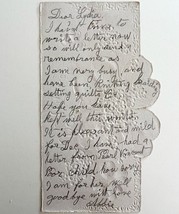 Dear Lydia
I haint time to
write a letter now
so will only send a
remembrance as
I am very busy and
have been knitting
setting quilts
Hope you have
kept well this winter
It is pleasant and mild
for Dec I have had a
letter from
Poor child how sorry
I am for her well
goodbye with love